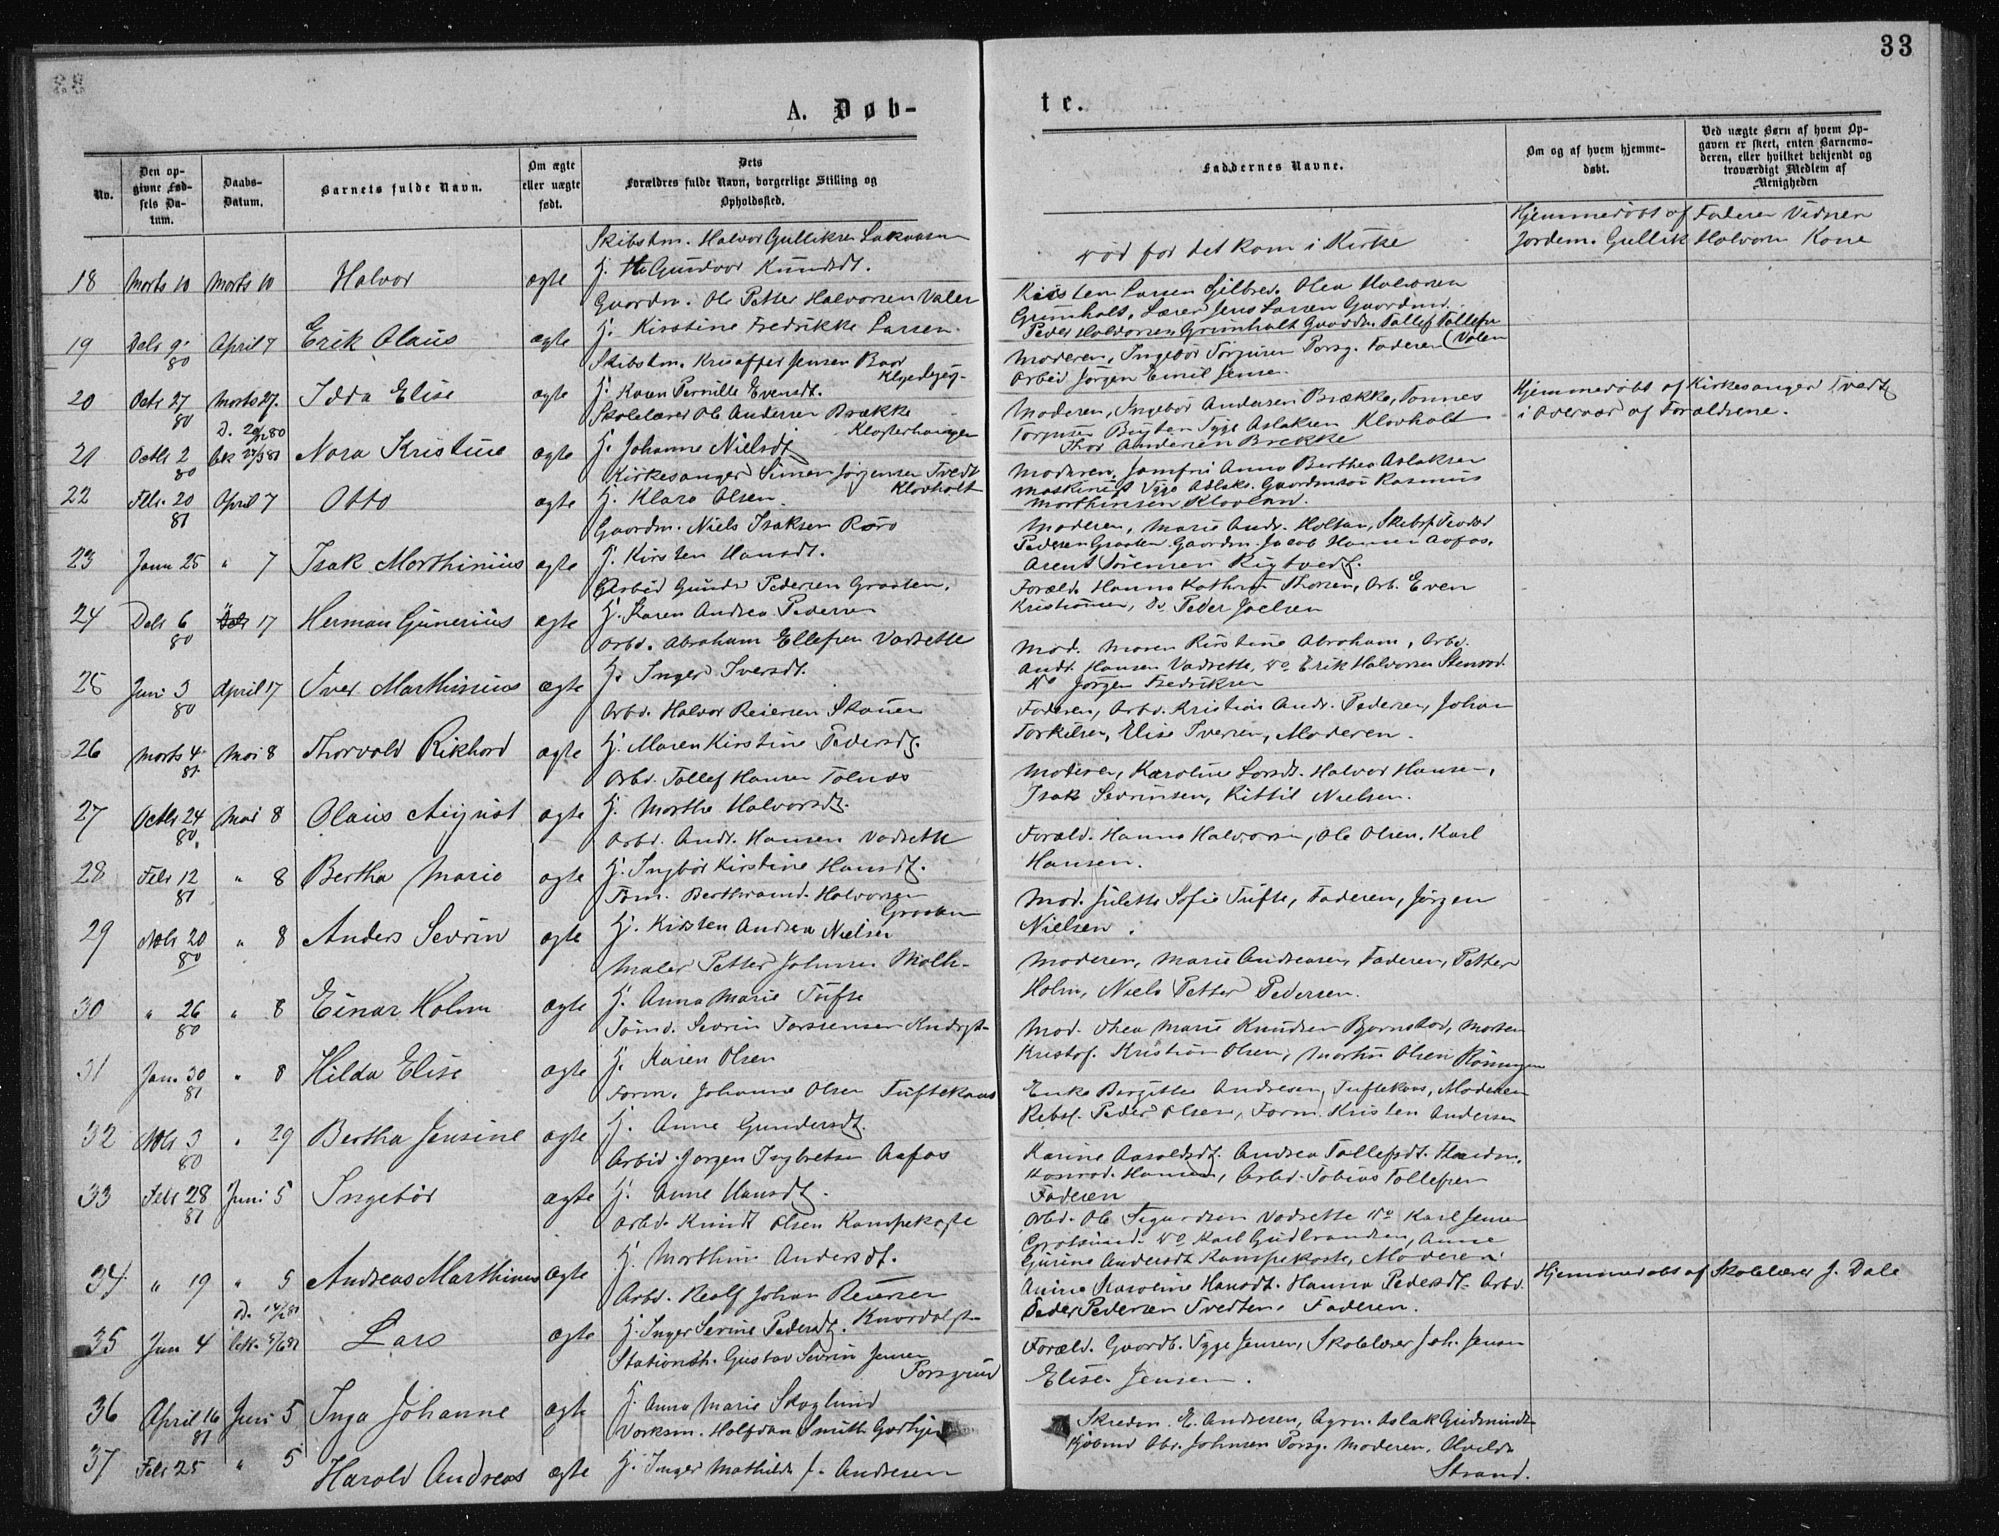 33
A. Døb-
te.
No.
Den opgivne Fødsels Datum.
Daabs-Datum.
Barnets fulde Navn.
Om ægte eller uægte født.
Dets Forældres fulde Navn, borgerlige Stilling og Opholdssted.
Faddernes Navne.
Om og af hvem hjemmedøbt.
Ved uægte Børn af hvem Opgaven er skeet, enten Barnemoderen, eller hvilket bekjendt og troværdigt Medlem af Menigheden
18 Marts 10 Marts 10 Halvor ægte
Skibstm. Halvor Gulliksen
H. Gundvor Knudsdt.
død før det kom i Kirke
Hjemmedøbt af Faderen Vidner
Jordem. Gullik Halvorsn Kone
19 Decb 9/80 April 7 Erik Olaus ægte
Gaardm. Ole Petter Halvorsen Valen
H. Kirstine Fredrikke Larsen
Kristen Larsen Olea Halvorsen
Grimholt, Lærer Jens Larsen Gaardmd.
Peder Halvorsen Grimholt Gaardm Tollef Tollefsn
(Valen
20 Octb 27/80 Marts 27. Idda Elise ægte
Skibstm. Kristoffer Jensen
H. Karen Pernille Evensdt.
Moderen, Ingebør Porsg. Faderen
Arbeid Jørgen Emil Jensen
21 Octb 2/80 D. 80 Nora Kristine ægte
Skolelærer Ole Andersen Brække
Klosterhaugen
H. Johanne Nielsdt
Moderen, Ingebør Andersen Brække, Tønnes
Torgusen Aslaksen Klovholt
Thor Andersen Brekke
Hjemmedøbt af Kirkesanger Tvedt
i Overvær af Forældrene.
22 Feb. 20/81 April 7 Otto ægte
Kirkesanger Simen Jørgensen Tvedt
Klovholt
H. Klara Olsen
Moderen, Jomfru Anna Berthea Aslaksen
Maskinist Aslaks. Gaardmsøn Rasmus
Marthinsen
23 Janu 25 " 7 Isak Marthinius ægte
Gaardm. Niels Isaksen Røro
H. Kirsten Hansdt.
Moderen, Marie Andr. Holtan, Skibsf
Pedersen Graaten Gaardm. Jacob Hansen Aafos,
Arent Sørensen
24 Decb 6/80 17 Herman Gunerius ægte
Arbeid Gunder Pedersen Graaten.
H. Karen Andrea Pedersen
Foræld. Hanna Kathrin Thorsen, Arb. Even
Kristiansen, Do Peder Joelsen
25 Juni 3/80 April 17 Iver Marthinius ægte
Arbd. Abraham Ellefsen Vadsette
H. Inger Iversdt.
Mod. Maren Kirstine Abraham, Arbd.
Andr. Hansen Vadsette, Do Erik Halvorsen
Do Jørgen Fredriksen
26 Marts 4/81 Mai 8 Thorvald Rikhard ægte
Arbd. Halvor Reiersen Skauen
H. Maren Kirstine Pedersdt.
Faderen, Arbd. Kristian Andr. Pedersen, Johan
Torkilsen, Elise Iversen, Moderen.
27 Octb 24/80 Mai 8 Olaus August ægte
Arbd. Tollef Hansen Tolnæs
H. Marthe Halvorsdt.
Moderen, Karoline Larsdt. Halvor Hansen,
Isak Sevrinsen, Kittil Nielsen.
28 Feb 12/81 " 8 Bertha Marie ægte
Arbd. Andr. Hansen Vadsette
H. Ingbør Kirstine Hansdt.
Foræld. Hanna Halvorsn, Ole Olsen. Karl
Hansen.
29 Nvb 20/80 " 8 Anders Sevrin ægte
Tøm. Berthvand Halvorsen
Graaten
H. Kirsten Andrea Nielsen
Mod. Julette Sofie Tufte, Faderen, Jørgen
Nielsen.
30 " 26/80 " 8 Einar Holm ægte
Maler Petter Johnsen
H. Anna Marie Tufte
Moderen, Marie Andreasen, Faderen, Petter
Holm, Niels Petter Pedersen.
31 Jan. 30/81 " 8 Hilda Elise ægte
Tømd. Sevrin Torstensen
H. Karen Olsen
Mod. Thea Marie Knudsen Bjørnstad, Morten
Kristof. Kristian Olsen, Martin Olsen Rønningen
32 Nvb 3/80 " 29 Bertha Jensine ægte
Form. Johannes Olsen Tuftekaas
H. Anne Gundersdt.
Enke Birgitte Andresen, Tuftekaas, Moderen
Rebsl. Peder Olsen, Form. Kristen Andersen
33 Feb 28/81 Juni 5 Ingebør ægte
Arbeid. Jørgen Ingbretsen Aafos
H. Anne Hansdt.
Karine Aaroldsdt. Andrea Tollefsdt.
Hansen, Arbd. Tobias Tollefsen
Faderen
34 " 19 " 5 Andreas Marthinus ægte
Arbd. Knudt Olsen Kampekaste
H. Marthine Andersdt.
Arbd. Ole Sigurdsen Vadsette Do Karl Jensen
Do Karl Gudbrandsen, Anne
Gurine Andersdt Kampekaste, Moderen.
35 Jan 4 D. 14/2 81 bek. 5/6 81 Lars ægte
Arbd. Realf Johan Reiersen
Knardalst
H. Inger Sevrine Pedersdt.
Karoline Hansdt. Hanna Pedersdt. Arbd.
Peder Pedersen Tvedten. Faderen.
Hjemmedøbt af Skolelærer J. Dale
36 April 16/81 Juni 5 Inga Johanne ægte
Stationsb. Gustav Sevrin Jensen
Porsgrund
H. Anna Marie Skoglund
Foræld. Gaardb. Jensen, Skolelærer Joh. Jensen
Elise Jensen.
37 Feb 25 " 5 Harald Andreas ægte
Værksm. Halfdan Smith
H. Inger Mathilde J. Andresen
Skredm. E. Andresen, Agrn. Aslak Gudmundt
Kjøbmd Abr. Johnsen Porsg. Moderen, Alvilde
Strand.